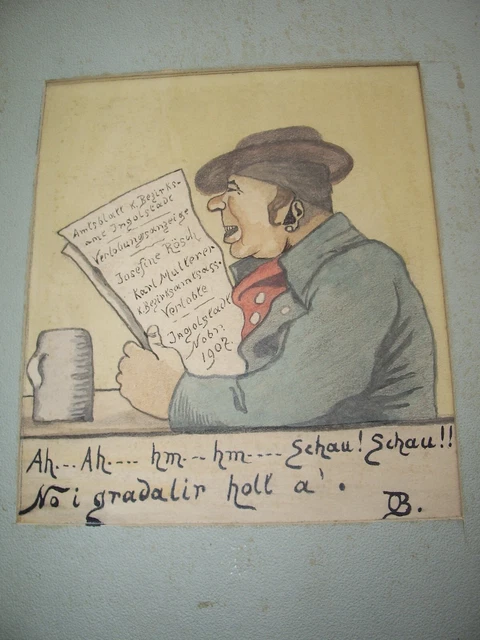 Amtsblatt K. Bezirks-
amt Ingolstadt
Verlobungsanzeige
Josefine Rösul
Karl Mutterer
K. Bezirksamtsass.
Verlobte
Ingolstadt
Nobr.
1907.
Ah... Ah.... hm... hm.... Schau! Schau!!
No i gradalir holt a'.
B.